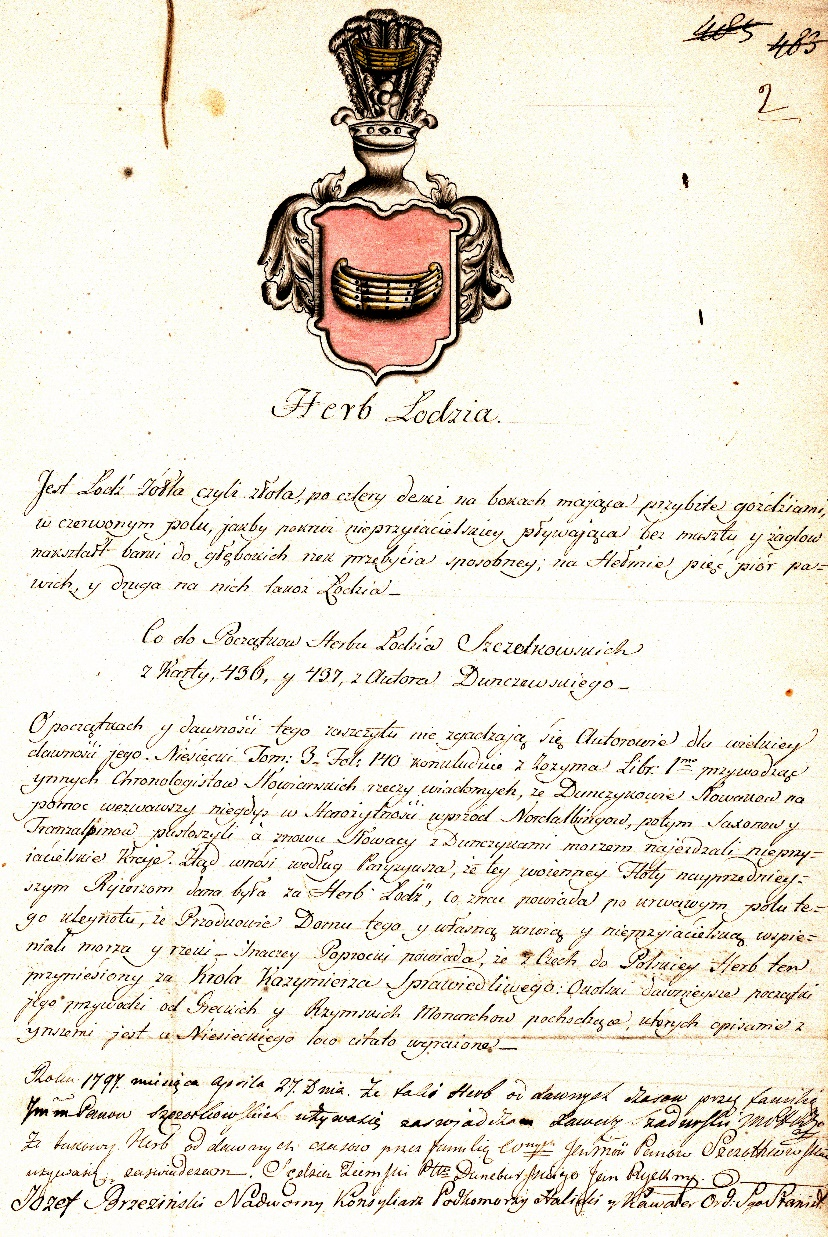 485 483
2
Herb Lodzia.
Jest Lodź żółta czyli złota, po cztery deski na bokach mająca przybite gozdziami,
w czerwonym polu, jakby po krwi nieprzyiacielskiey pływająca bez masztu y zaglow
nakształt barki do głębokich rzek przebycia sposobney; na Hełmie pięc piór pa-
wich, y druga na nich takaż Lodzia_
Co do Początkow Herbu Lodzia Szczotkowskich
z Karty, 436, y 437, z Autora Dunczewskiego_
O początkach y dawności tego zaszczytu nie zgadzają się Autorowie dla wielkiey
dawności jego. Niesiecki Tom: 3_ Fol: 140 konkluduie z Zozyma Libr: 1mo przywodząc
ynnych Chronologistow Słowianskich rzeczy wiadomych, że Dunczykowie Słowakow na
pomoc wezwawszy niegdyś w Starożytności wprzod Nordalbingow, potym Saxonow y
Tranzalpinow pustoszyli a znowu Słowacy z Dunczykami morzem najezdzali nieprzy-
iacielskie Kraje. Ztąd wnosi według Paryzyusza, że tey woienney Floty nayprzedniey-
szym Rycerzom dana była za Herb Lodź, co znac powiada po krwawym polu te-
go kleynotu, że Przodkowie Domu tego y własną krwią y nieprzyiacielską wspie-
niali morza y rzeki_ Inaczey Poprocki powiada, że z Czech do Polskiey Herb ten
przyniesiony za Krola Kazymierza Sprawiedliwego: Okolski dawnieysze początki
jego przywodzi od Greckich y Rzymskich Monarchow pochodzące, których opisanie z
ynszemi jest u Niesieckiego loco citato wyrażone_
Roku 1797 miesiąca Aprila 27. Dnia. Że takiż Herb od dawnych czasow przez familię
Jmm Panow Szczotkowskich używaią zaswiadczam Xawery Szadurski
Że takowy Herb od dawnych czasow przez familię Jmm Panow Szczotkowskich
używany, zaświadczam. Sędzia Ziemski Ptu Duneburskiego Jan
Józef Brzeziński Nadworny Konsyliarz Podkomorzy Halicki y Kawaler Ord: Sgo Stanisł: